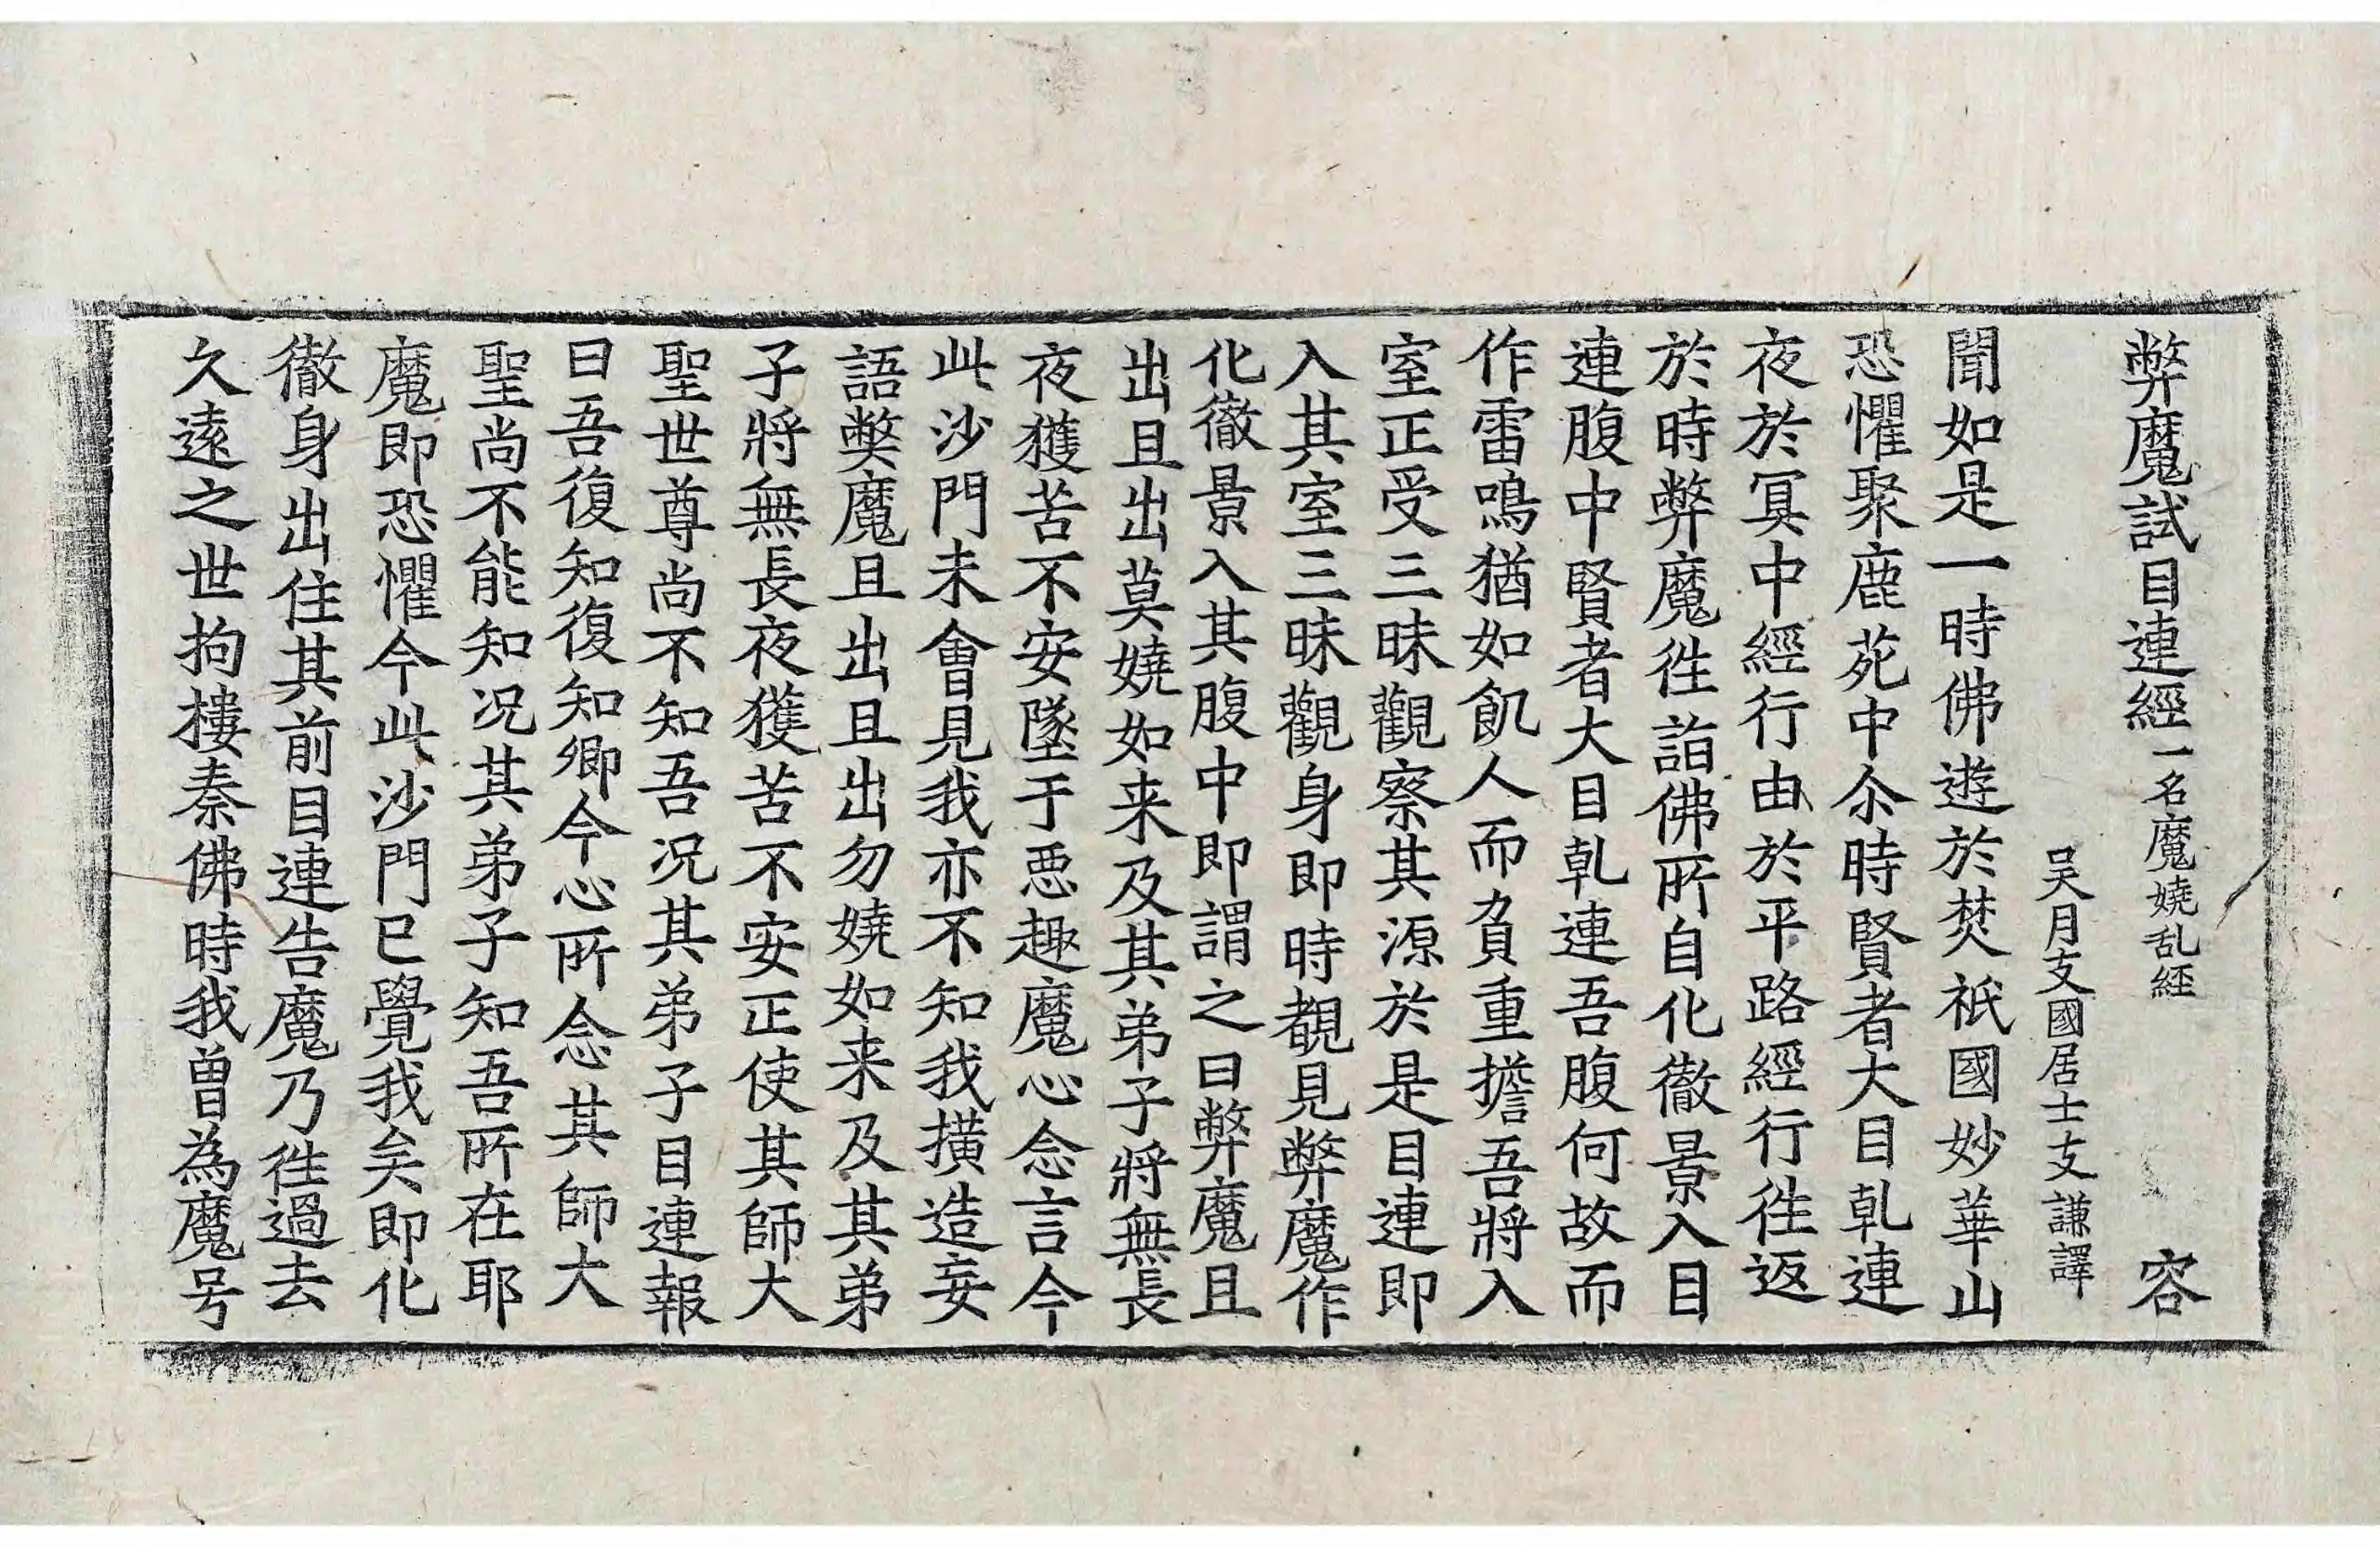 弊魔試目連經一名魔嬈乱経 容
吴月支國居士支謙譯
聞如是一時佛遊於焚祇國妙華山
恐懼聚鹿苑中尒時賢者大目乹連
夜於冥中經行由於平路經行往返
於時弊魔往詣佛所自化徹景入目
連腹中賢者大目乹連吾腹何故而
作雷鳴猶如飢人而負重擔吾將入
室正受三昧觀察其源於是目連即
入其室三昧觀身即時覩見弊魔作
化徹景入其腹中即謂之曰弊魔且
出且出莫嬈如来及其弟子將無長
夜獲苦不安墜于惡趣魔心念言今
此沙門未曾見我亦不知我撗造妄
語獘魔且出且出勿嬈如来及其弟
子將無長夜獲苦不安正使其師大
聖世尊尚不知吾况其弟子目連報
曰吾復知復知卿今心所念其師大
聖尚不能知况其弟子知吾所在耶
魔即恐懼今此沙門已覺我矣即化
徹身出住其前目連告魔乃往過去
久遠之世拘樓秦佛時我曾為魔号